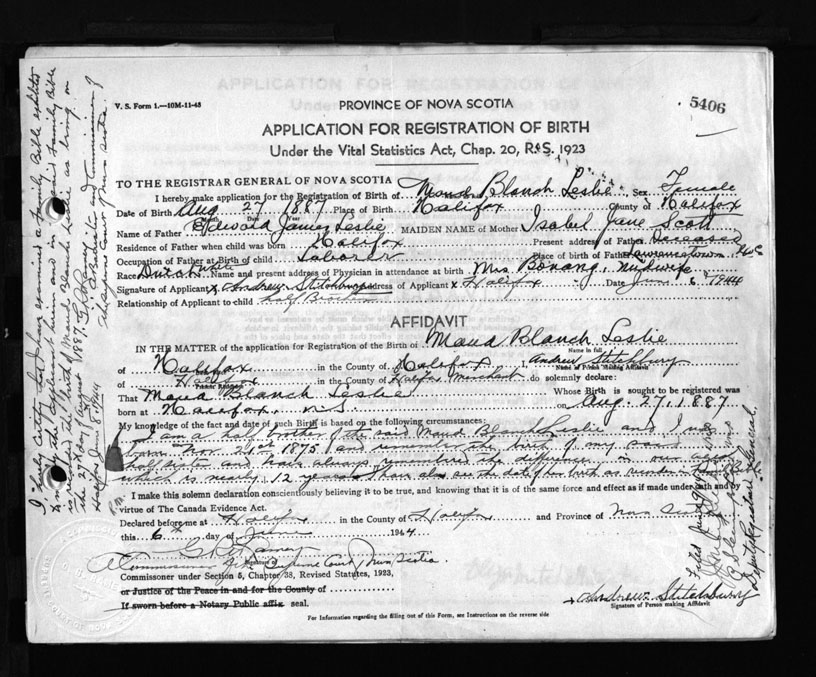 V. S. Form 1.—10M-11-43
5406
PROVINCE OF NOVA SCOTIA
APPLICATION FOR REGISTRATION OF BIRTH
Under the Vital Statistics Act, Chap. 20, R.S. 1923
TO THE REGISTRAR GENERAL OF NOVA SCOTIA
I hereby make application for Registration of Birth of "Maud Blanch Leslie" Sex Female
Date of Birth Aug 27 1887 Place of Birth Halifax County of Halifax
Name of Father Edward James Leslie MAIDEN NAME of Mother Isabel Jane Scott
Residence of Father when child was born Halifax Present address of Father Deceased
Occupation of Father at Birth of child Laborer Place of birth of Father Lawrencetown
Race Dutch White Name and present address of Physician in attendance at birth Mrs. Bonang, Midwife
Signature of Applicant x Andrew Stitchbury Address of Applicant x Halifax Date June 6 1944
Relationship of Applicant to child half Brother
AFFIDAVIT
IN THE MATTER of the application for Registration of the Birth of Maud Blanch Leslie
Name in full
of Halifax in the County of Halifax I, Andrew Stitchbury
Name of Person Making Affidavit
of Halifax in the County of Halifax Merchant do solemnly declare:
That Maud Blanch Leslie Whose Birth is sought to be registered was
born at Halifax, N.S. on Aug. 27, 1887
My knowledge of the fact and date of such Birth is based on the following circumstances:
I am a half brother of the said Maud Blanch Leslie and I was
born Nov 21st 1875 and remember the birth of my
half sister and have always remembered the difference in our ages
which is nearly 12 years
I make this solemn declaration conscientiously believing it to be true, and knowing that it is of the same force and effect as if made under oath and by
virtue of The Canada Evidence Act.
Declared before me at Halifax in the County of Halifax and Province of Nova Scotia
this 6th day of June 1944
A Commissioner of the Supreme Court, Nova Scotia.
Commissioner under Section 5, Chapter 38, Revised Statutes, 1923,
or Justice of the Peace in and for the County of
If sworn before a Notary Public affix seal.
x Andrew Stitchbury
Signature of Person making Affidavit
For Information regarding the filling out of this Form, see Instructions on the reverse side
I hereby certify that I have examined a family Bible exhibited
to me by the Applicant herein and in the said family Bible
is recorded the birth of Maud Blanch Leslie as being on
the 27th day of August 1887.
Halifax June 8. 1944
A Barrister and Commissioner of
Supreme Court of Nova Scotia.
Deputy Registrar General,